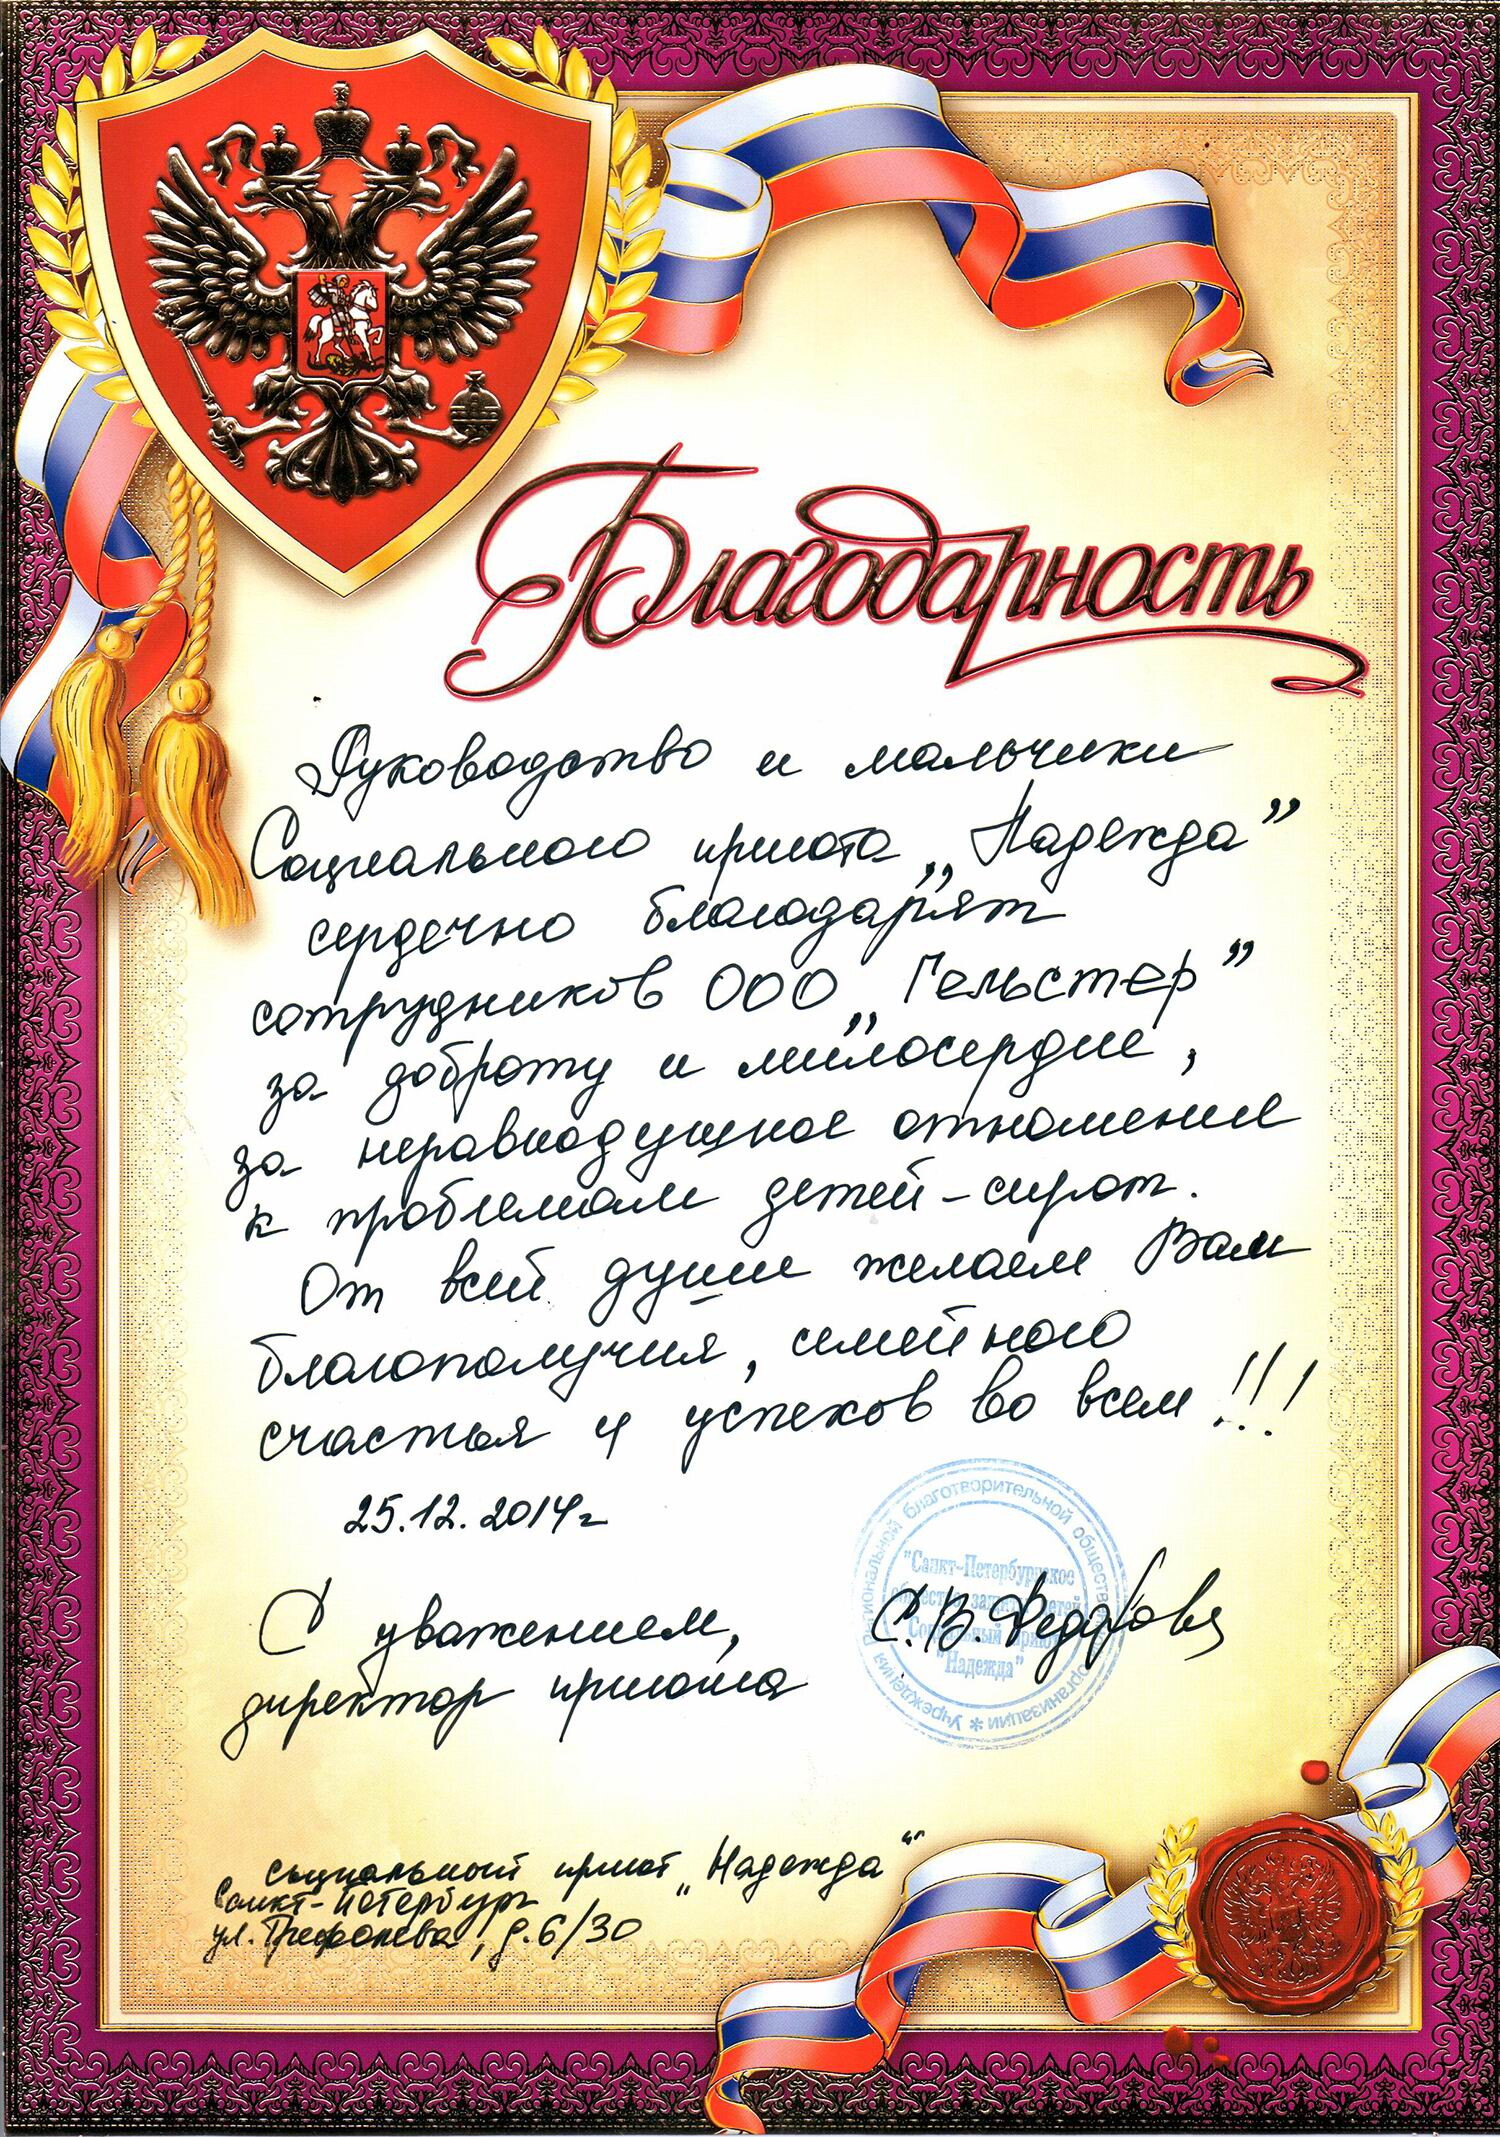 Благодарность
Руководство и мальчики
Социального приюта „Надежда”
сердечно благодарят
сотрудников ООО „Гельстер”
за доброту и милосердие,
за неравнодушное отношение
к проблемам детей-сирот.
От всей души желаем Вам
благополучия, семейного
счастья и успехов во всем!!!
25.12.2014г
С уважением,
директор приюта
С.В. Федорова
Учреждения * Региональной благотворительной общественной организации
"Санкт-Петербургское
общество защиты детей"
"Социальный приют
"Надежда"
социальный приют „Надежда“
Санкт-Петербург
ул. Трефолева, д. 6/30